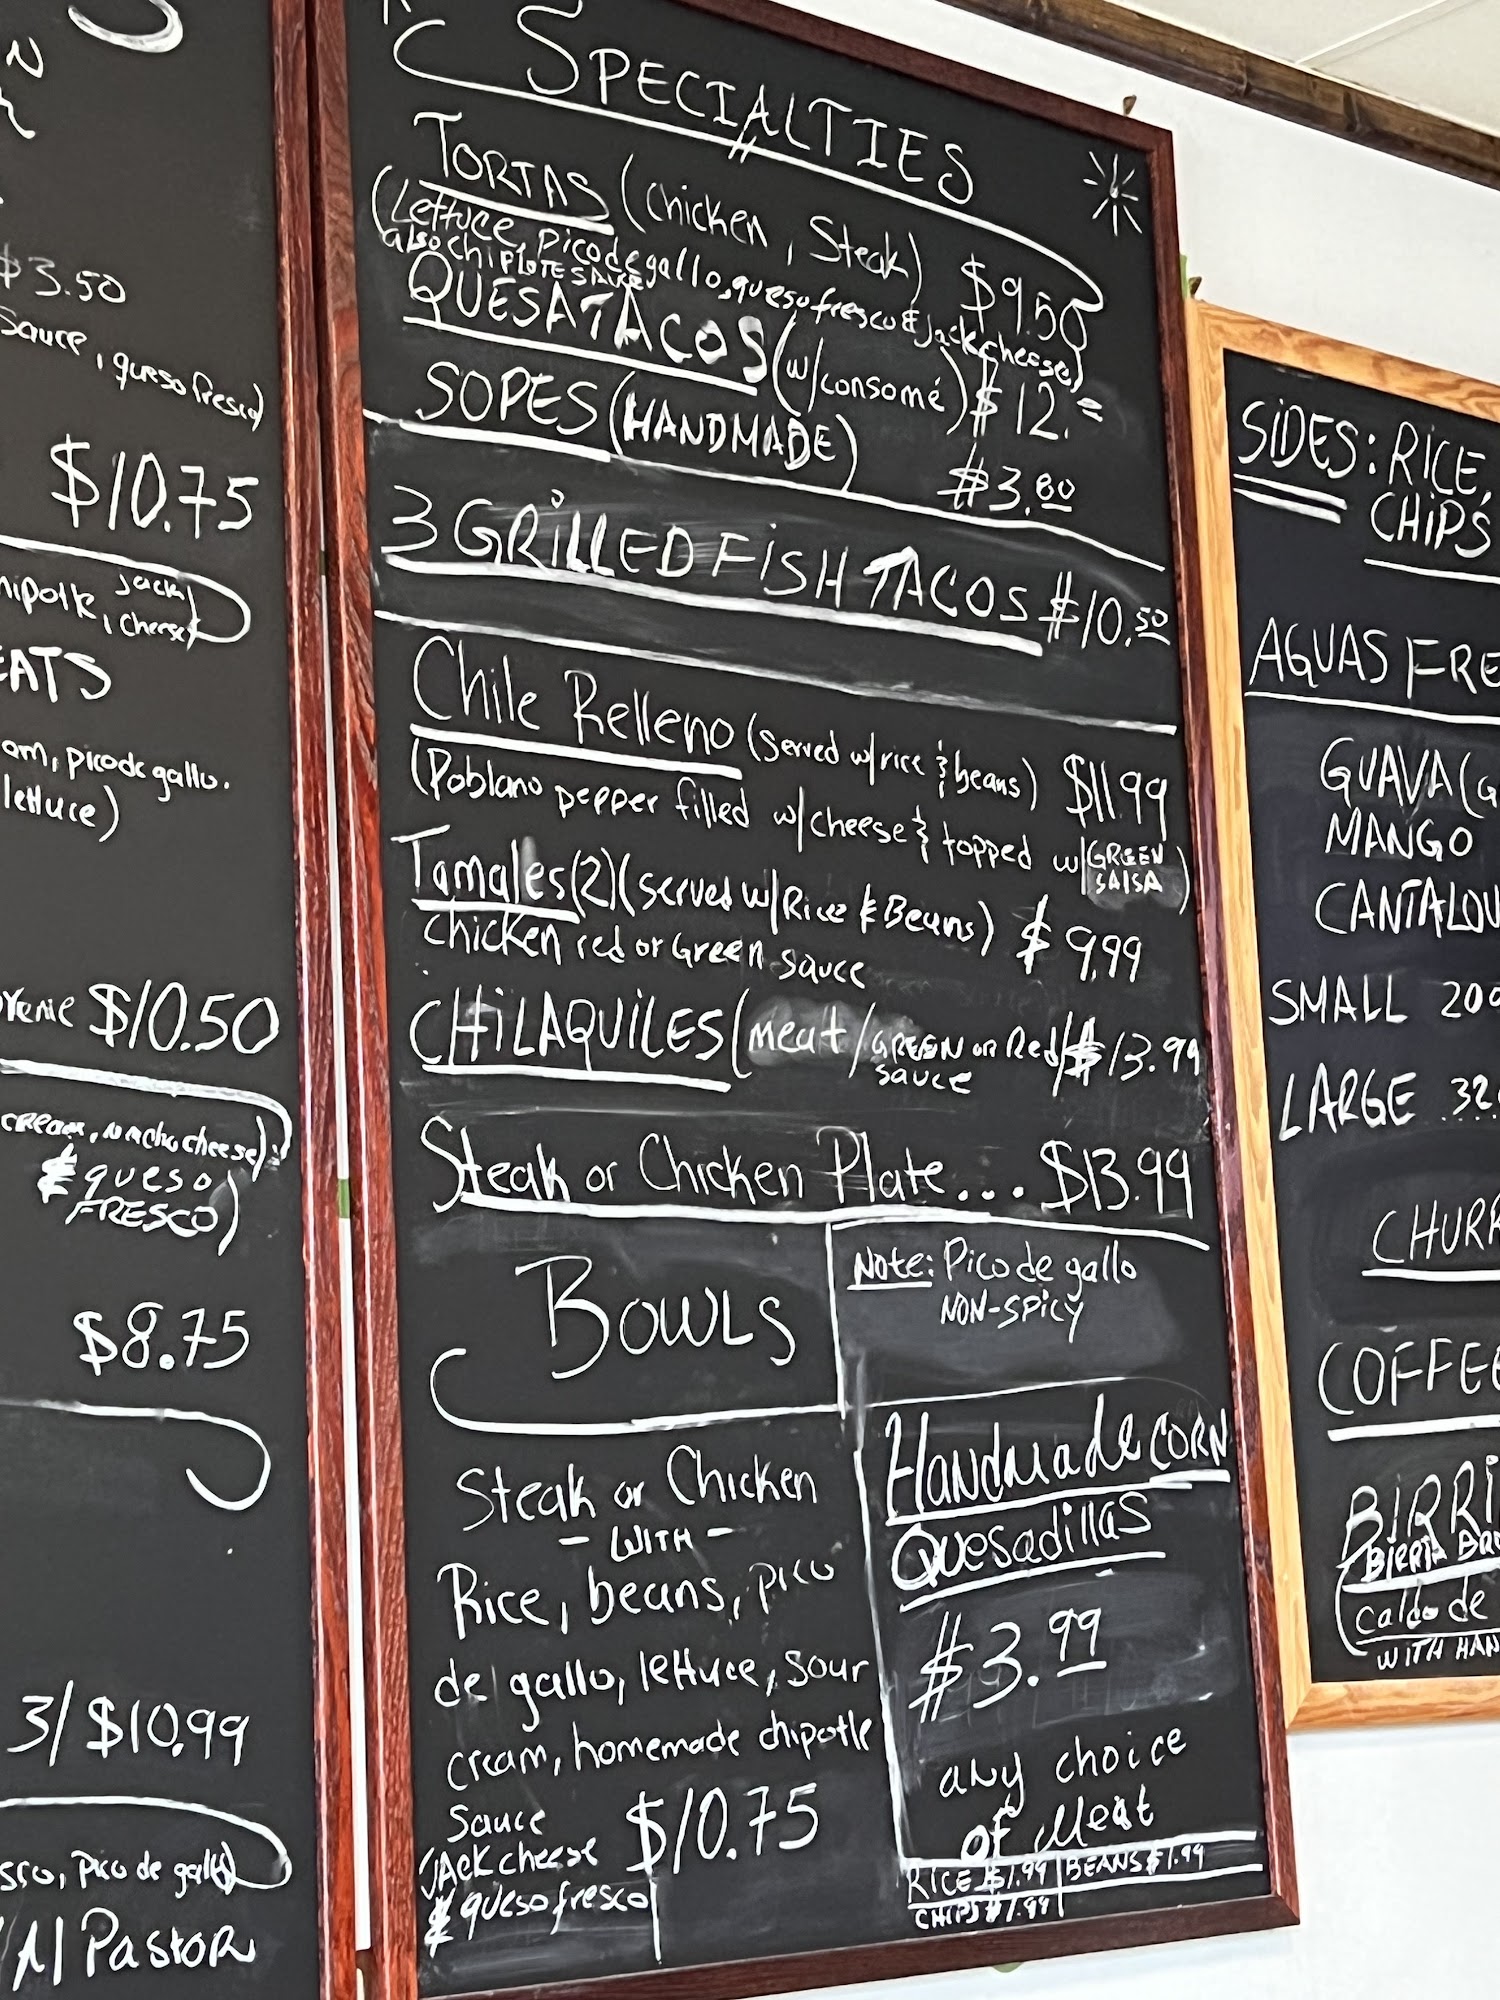 $3.50
sauce, queso fresco)
$10.75
Jack
cheese)
pico de gallo.
lettuce)
$10.50
cream, nacho cheese)
& queso
FRESCO)
$8.75
3/$10.99
pico de gallo)
Al Pastor
SPECIALTIES
TORTAS (chicken, Steak) $9.50
(Lettuce, pico de gallo, queso fresco & Jack cheese)
also chiplote sauce
QUESATACOS (w/consomé) $12.=
SOPES (HANDMADE) $3.80
3 GRILLED FISH TACOS $10.50
Chile Relleno (served w/rice & beans) $11.99
(Poblano pepper filled w/cheese & topped w/GREEN SALSA)
Tamales (2) (served w/Rice & Beans) $9.99
chicken red or Green sauce
CHILAQUILES (meat/GREEN OR Red/ $13.99
sauce
Steak or Chicken Plate... $13.99
BOWLS
Steak or Chicken
- WITH -
Rice, beans, pico
de gallo, lettuce, sour
cream, homemade chipotle
sauce $10.75
JACK cheese
& queso fresco
Note: Pico de gallo
NON-SPICY
Handmade CORN
Quesadillas
$3.99
any choice
of Meat
RICE $1.99 BEANS $1.99
CHIPS $1.99
SIDES: RICE,
CHIPS
AGUAS
GUAVA
MANGO
SMALL
LARGE
COFFEE
Caldo de
WITH